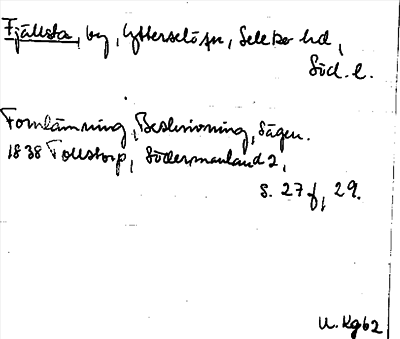 Fjällsta, by, Ytterselö sn, Selebo hd,
Söd. l.
Fornlämning, Beskrivning, Sägen.
1838 Tollstorp, Södermanland 2,
s. 27 f, 29.
U. Kg62